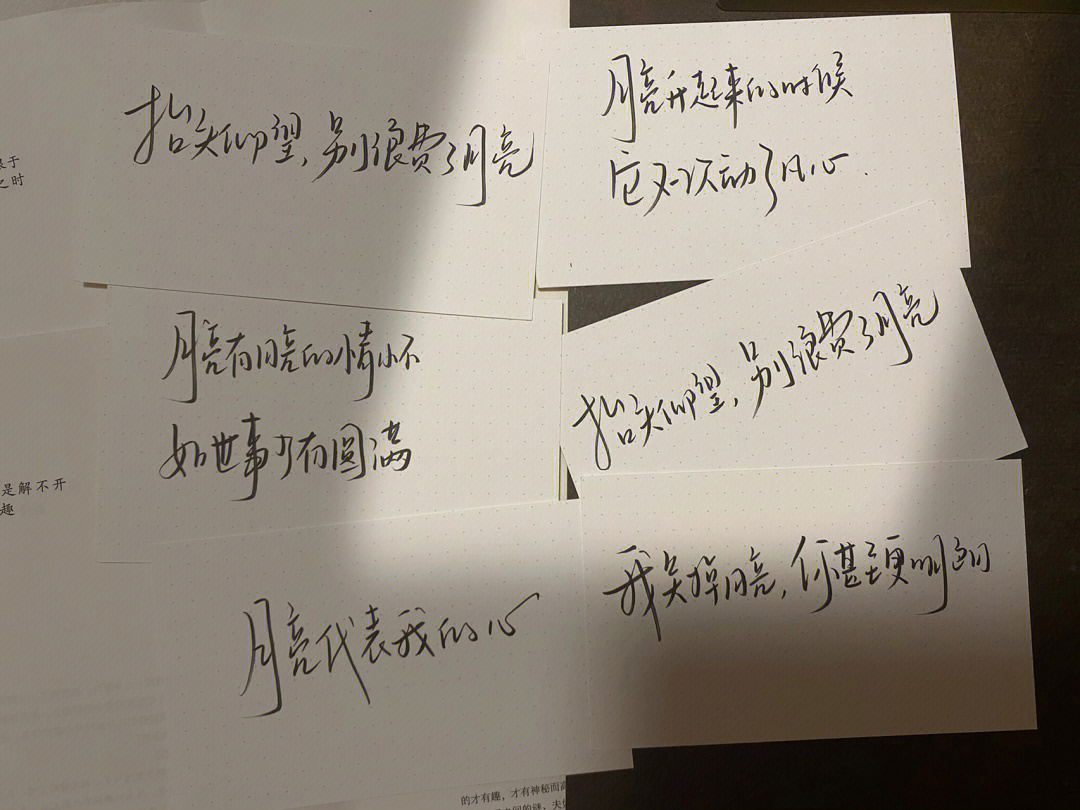 抬头仰望,别浪费了月亮
月亮升起来的时候
它又一次动了凡心.
月亮有月亮的情小不
如世事少有圆满
抬头仰望,别浪费了月亮
月亮代表我的心
我关掉月亮,你甚至更明朗
之时
是解不开
趣
的才有趣,才有神秘而高